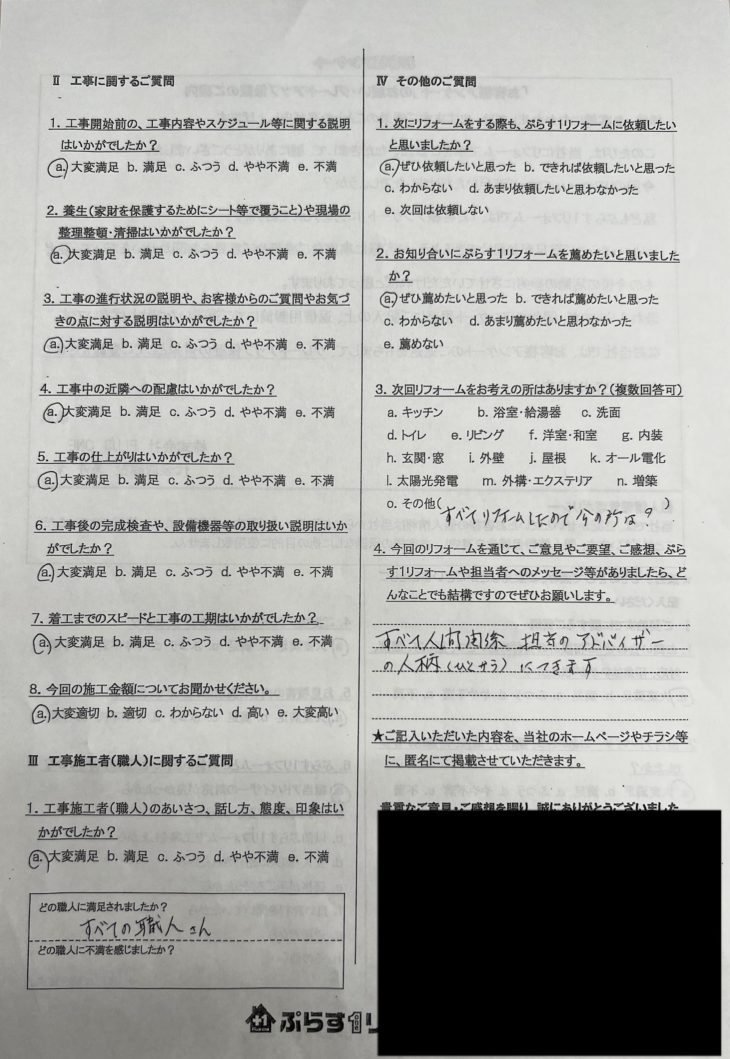 Ⅱ 工事に関するご質問
1. 工事開始前の、工事内容やスケジュール等に関する説明
はいかがでしたか?
a. 大変満足 b. 満足 c. ふつう d. やや不満 e. 不満
2. 養生(家財を保護するためにシート等で覆うこと)や現場の
整理整頓・清掃はいかがでしたか?
a. 大変満足 b. 満足 c. ふつう d. やや不満 e. 不満
3. 工事の進行状況の説明や、お客様からのご質問やお気づ
きの点に対する説明はいかがでしたか?
a. 大変満足 b. 満足 c. ふつう d. やや不満 e. 不満
4. 工事中の近隣への配慮はいかがでしたか?
a. 大変満足 b. 満足 c. ふつう d. やや不満 e. 不満
5. 工事の仕上がりはいかがでしたか?
a. 大変満足 b. 満足 c. ふつう d. やや不満 e. 不満
6. 工事後の完成検査や、設備機器等の取り扱い説明はいか
がでしたか?
a. 大変満足 b. 満足 c. ふつう d. やや不満 e. 不満
7. 着工までのスピードと工事の工期はいかがでしたか?
a. 大変満足 b. 満足 c. ふつう d. やや不満 e. 不満
8. 今回の施工金額についてお聞かせください。
a. 大変適切 b. 適切 c. わからない d. 高い e. 大変高い
Ⅲ 工事施工者(職人)に関するご質問
1. 工事施工者(職人)のあいさつ、話し方、態度、印象はい
かがでしたか?
a. 大変満足 b. 満足 c. ふつう d. やや不満 e. 不満
どの職人に満足されましたか?
すべての職人さん
どの職人に不満を感じましたか?
Ⅳ その他のご質問
1. 次にリフォームをする際も、ぷらす1リフォームに依頼したい
と思いましたか?
a. ぜひ依頼したいと思った b. できれば依頼したいと思った
c. わからない d. あまり依頼したいと思わなかった
e. 次回は依頼しない
2. お知り合いにぷらす1リフォームを薦めたいと思いました
か?
a. ぜひ薦めたいと思った b. できれば薦めたいと思った
c. わからない d. あまり薦めたいと思わなかった
e. 薦めない
3. 次回リフォームをお考えの所はありますか?(複数回答可)
a. キッチン b. 浴室・給湯器 c. 洗面
d. トイレ e. リビング f. 洋室・和室 g. 内装
h. 玄関・窓 i. 外壁 j. 屋根 k. オール電化
l. 太陽光発電 m. 外構・エクステリア n. 増築
o. その他(すべてリフォームしたので今の所は?)
4. 今回のリフォームを通じて、ご意見やご要望、ご感想、ぷら
す1リフォームや担当者へのメッセージ等がありましたら、ど
んなことでも結構ですのでぜひお願いします。
すべて人間関係 担当のアドバイザー
の人柄(ひとがら)につきます
★ご記入いただいた内容を、当社のホームページやチラシ等
に、匿名にて掲載させていただきます。
貴重なご意見・ご感想を賜り、誠にありがとうございました
+1
ぷらす1リ
one